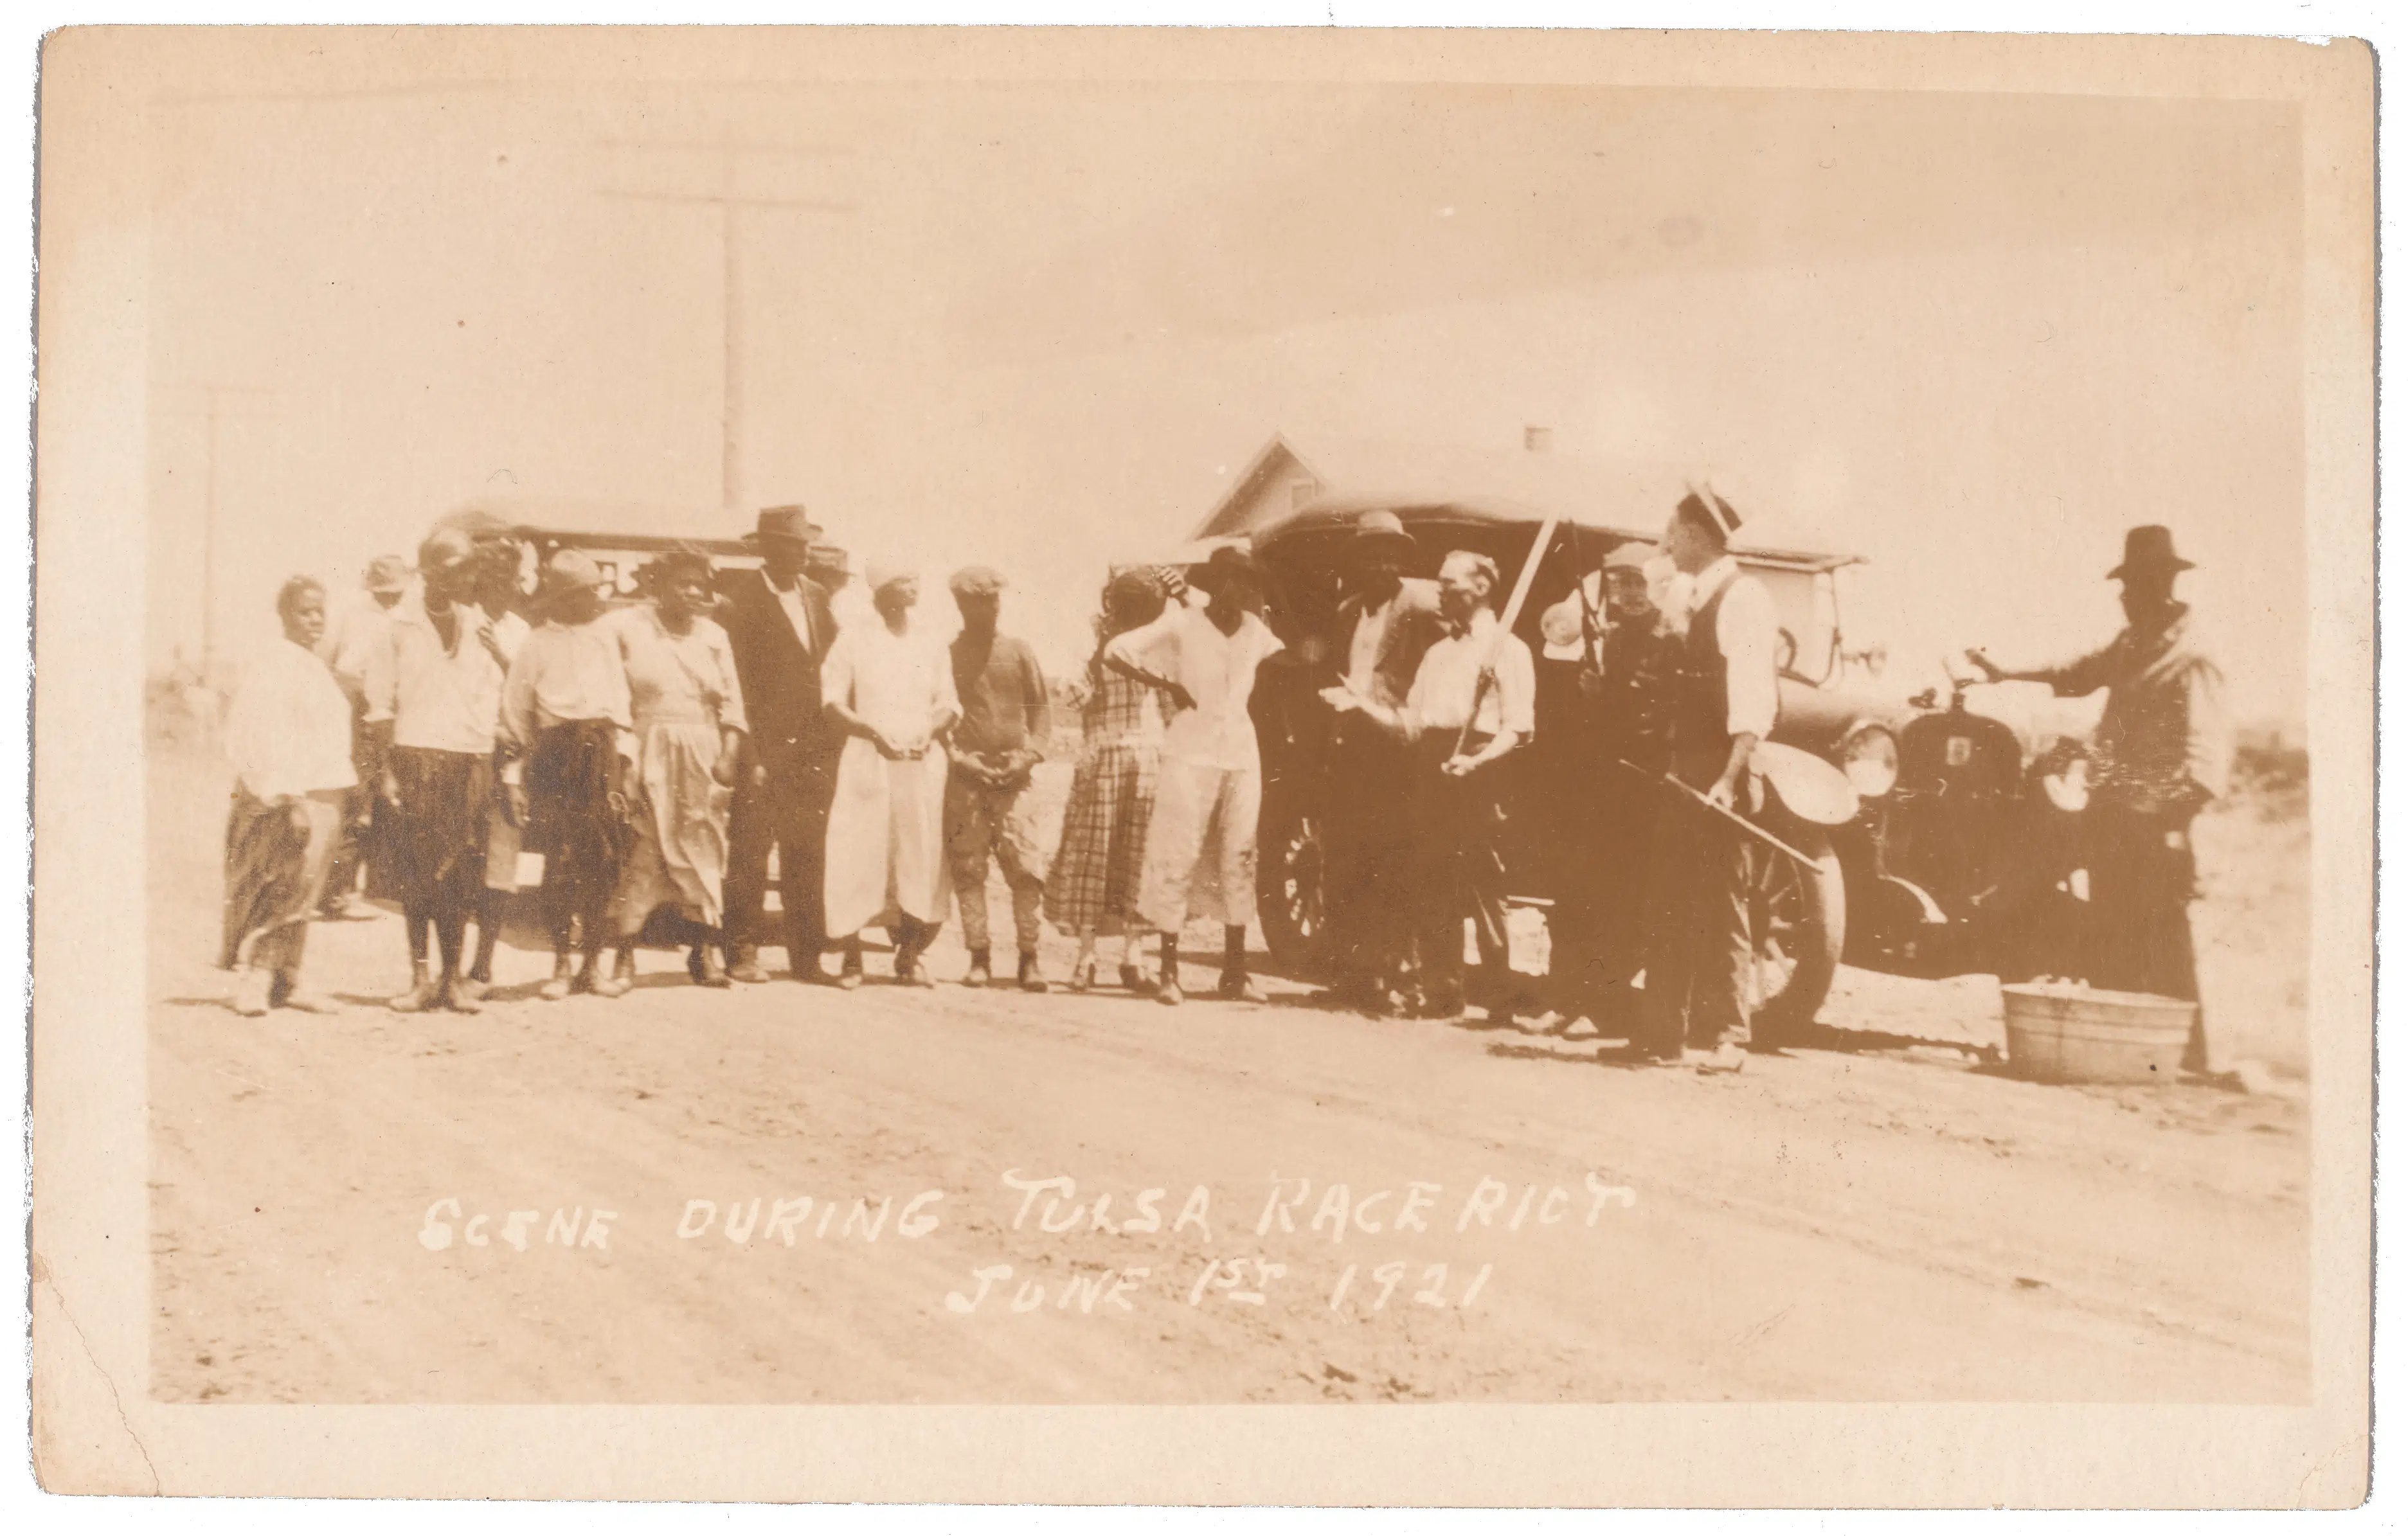 SCENE DURING TULSA RACE RIOT
JUNE 1ST 1921